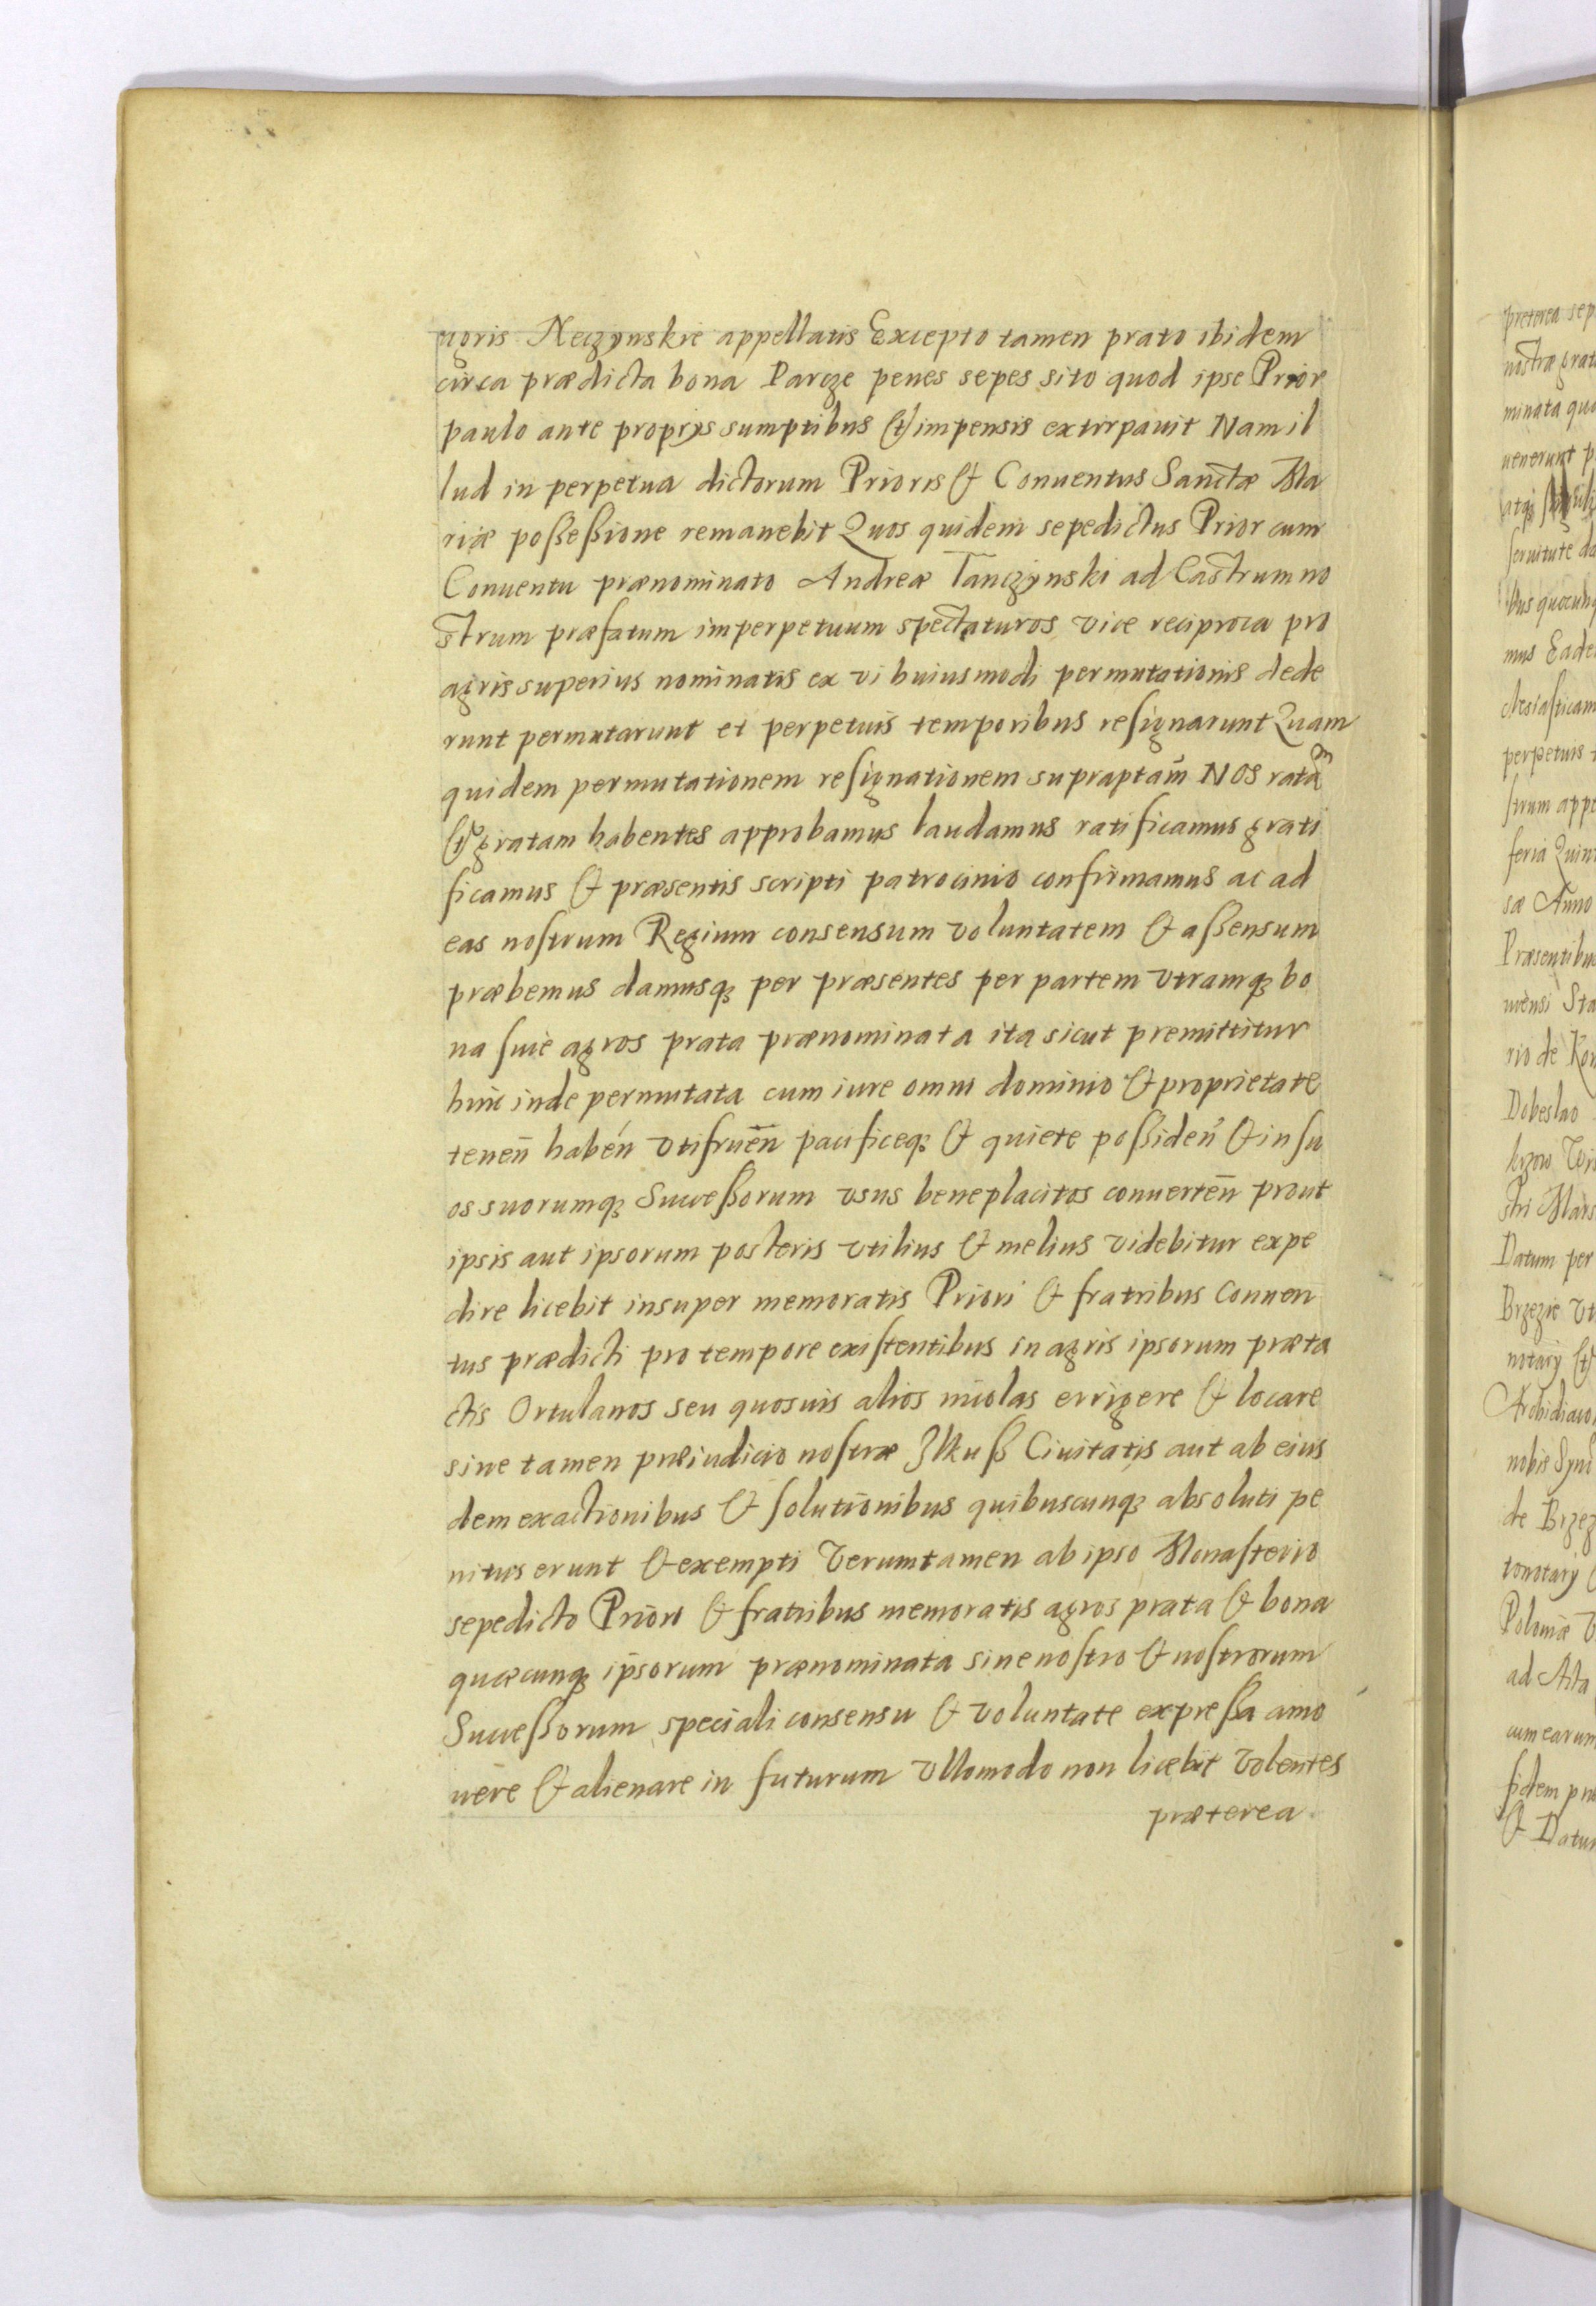 agris Neczynskie appellatis Excepto tamen prato ibidem
circa prædicta bona Parcze penes sepes sito quod ipse Prior
paulo ante proprys sumptibus & impensis extirpauit Nam il
lud in perpetua dictorum Prioris & Conuentus Sanctæ Ma
riæ poßeßione remanebit Quos quidem sepedictus Prior cum
Conuentu prænominato Andreæ Tanczynski ad Castrum no
strum præfatum imperpetuum spectaturos vice reciproca pro
agris superius nominatis ex vi huiusmodi permutationis dede
runt permutarunt et perpetuis temporibus resignarunt Quam
quidem permutationem resignationem supraptam̄ NOS ratam
& gratam habentes approbamus laudamus ratificamus grati
ficamus & præsentis scripti patrocinio confirmamus ac ad
eas nostrum Regium consensum voluntatem & aßensum
præbemus damusqꝫ per præsentes per partem vtramqꝫ bo
na siue agros prata prænominata ita sicut premittitur
hinc inde permutata cum iure omni dominio & proprietate
tenen̄ haben̄ vtifruen̄ pacificeqꝫ & quiete poßiden̄ & in su
os suorumqꝫ Succeßorum vsus beneplacitos conuerten̄ prout
ipsis aut ipsorum posteris vtilius & melius videbitur expe
dire licebit insuper memoratis Priori & fratribus Conuen
tus prædicti pro tempore existentibus in agris ipsorum præta
ctis Ortulanos seu quosuis alios incolas errigere & locare
sine tamen præiudicio nostræ Ilkuß Ciuitatis aut ab eius
dem exactionibus & solutionibus quibuscunqꝫ absoluti pe
nitus erunt & exempti Verumtamen ab ipso Monasterio
sepedicto Priori & fratribus memoratis agros prata & bona
quæcunqꝫ ipsorum prænominata sine nostro & nostrorum
Succeßorum speciali consensu & voluntate expreßa amo
uere & alienare in futurum vllomodo non licebit Volentes
præterea